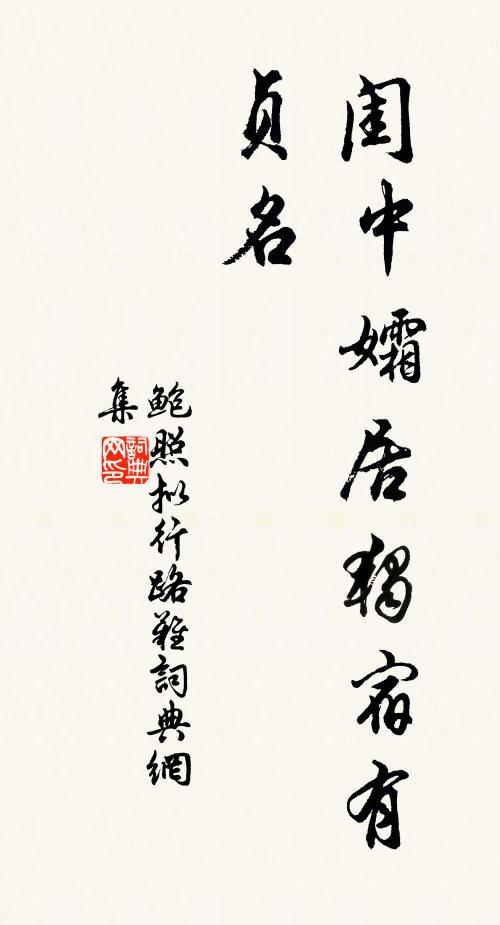 閨中孀居獨宿有
貞名
鮑照拟行路難詞典網
集
詞典
网印